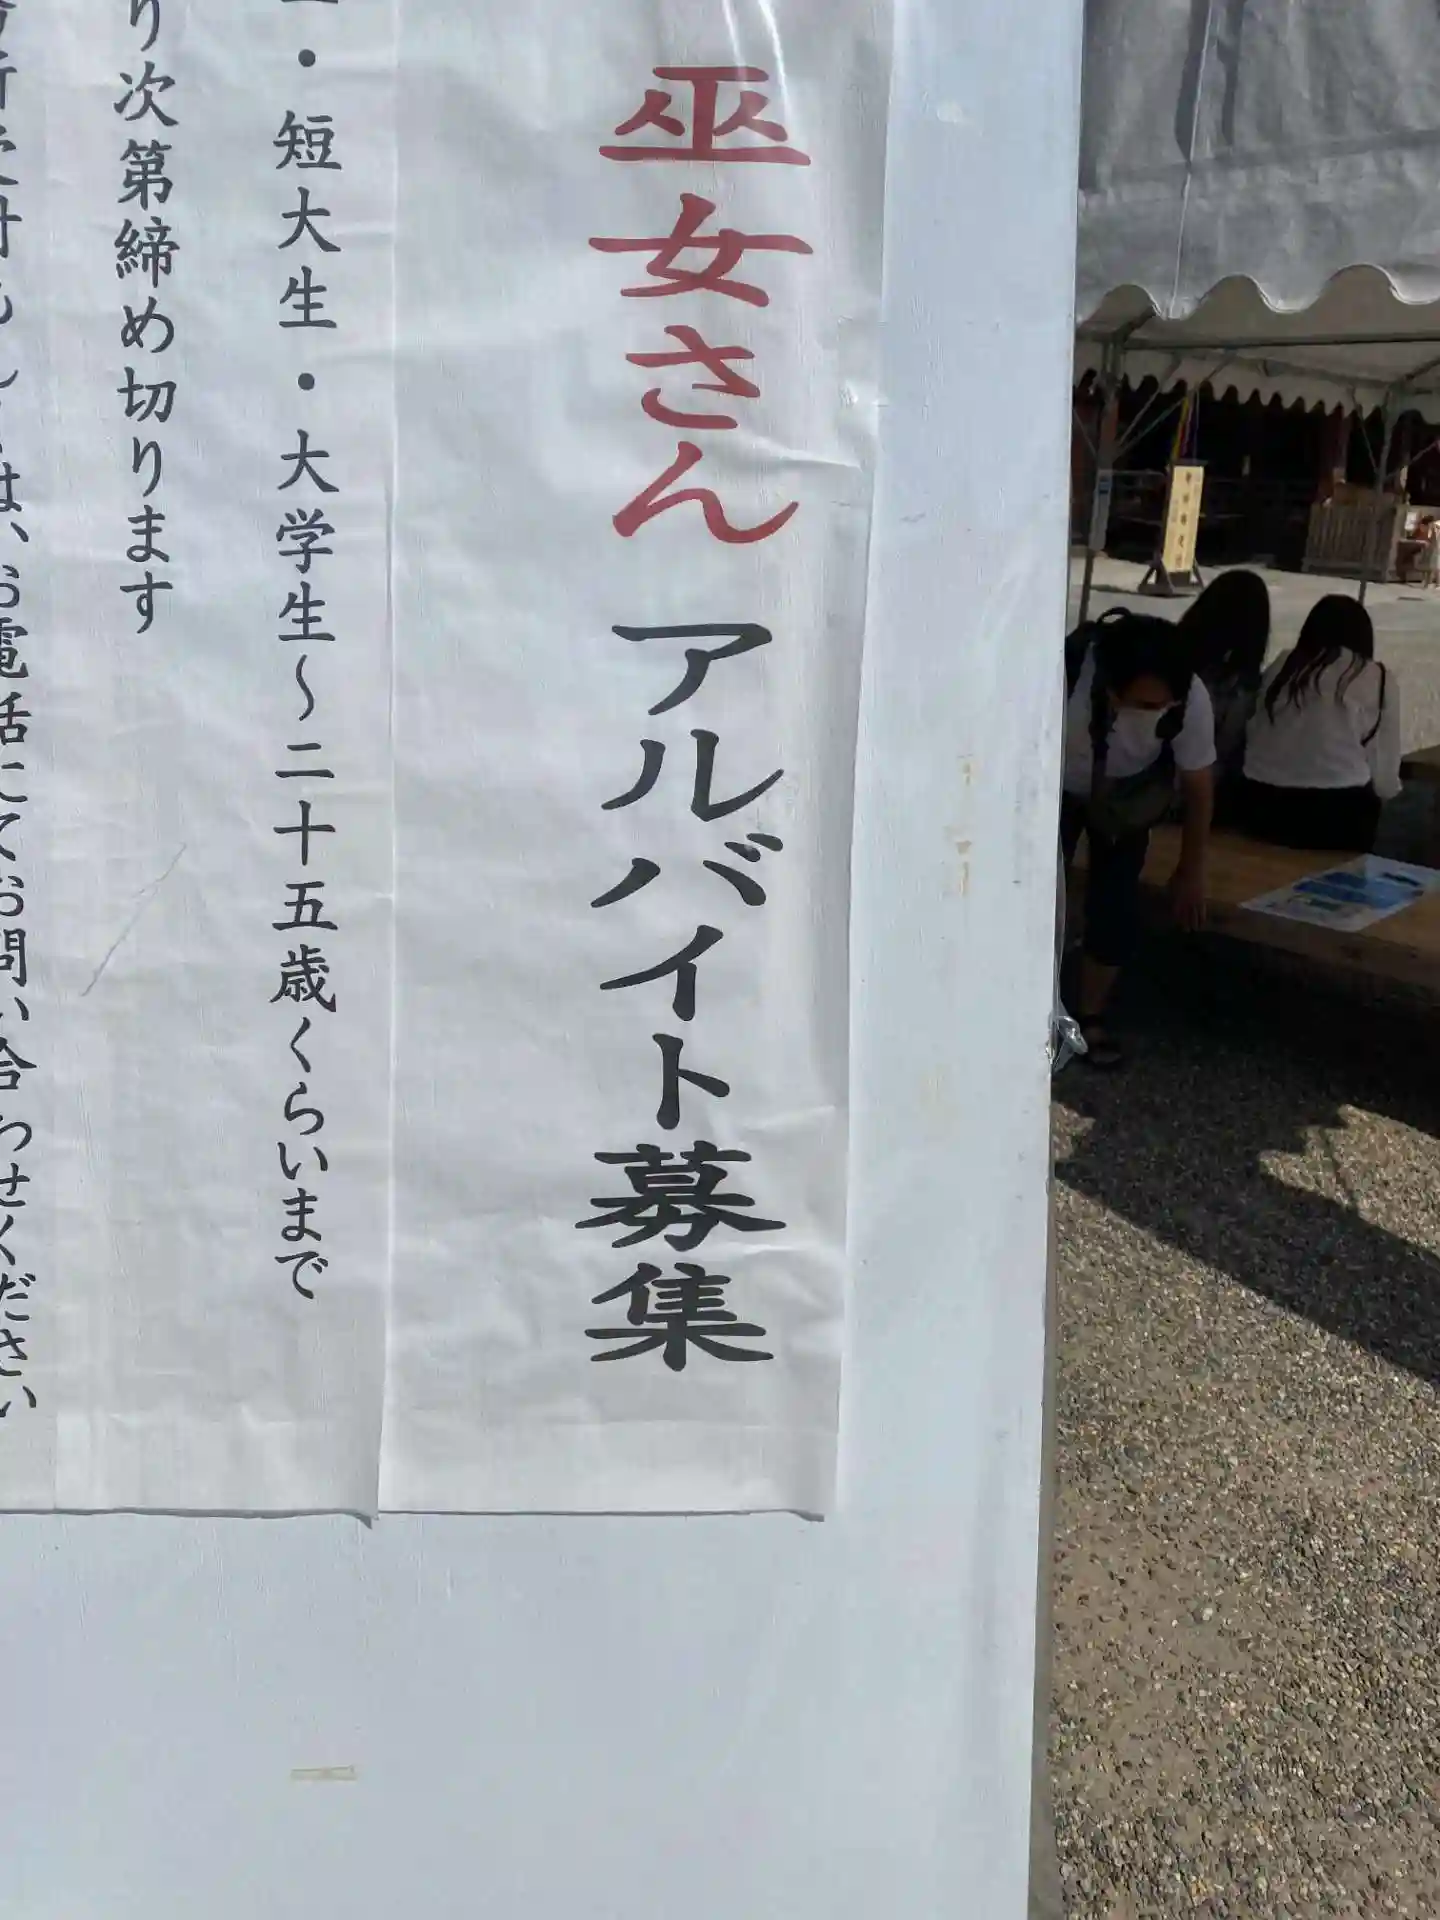 巫女さんアルバイト募集
・短大生・大学生〜二十五歳くらいまで
り次第締め切ります
は、お電話にてお問い合わせください